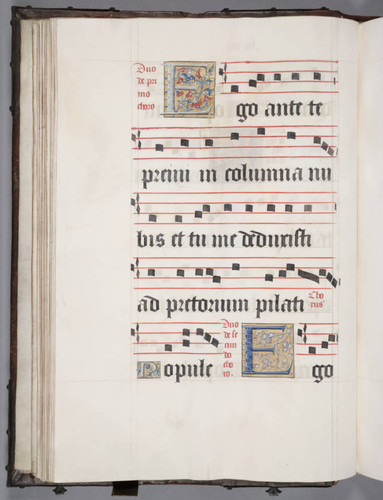 Duo
de pri
mo
choro
Ego ante te
preiui in columna nu
bis et tu me deduxisti
ad pretorium pilati
Cho
rus
Popule
Duo
de se
cun
do
cho
ro.
Ego